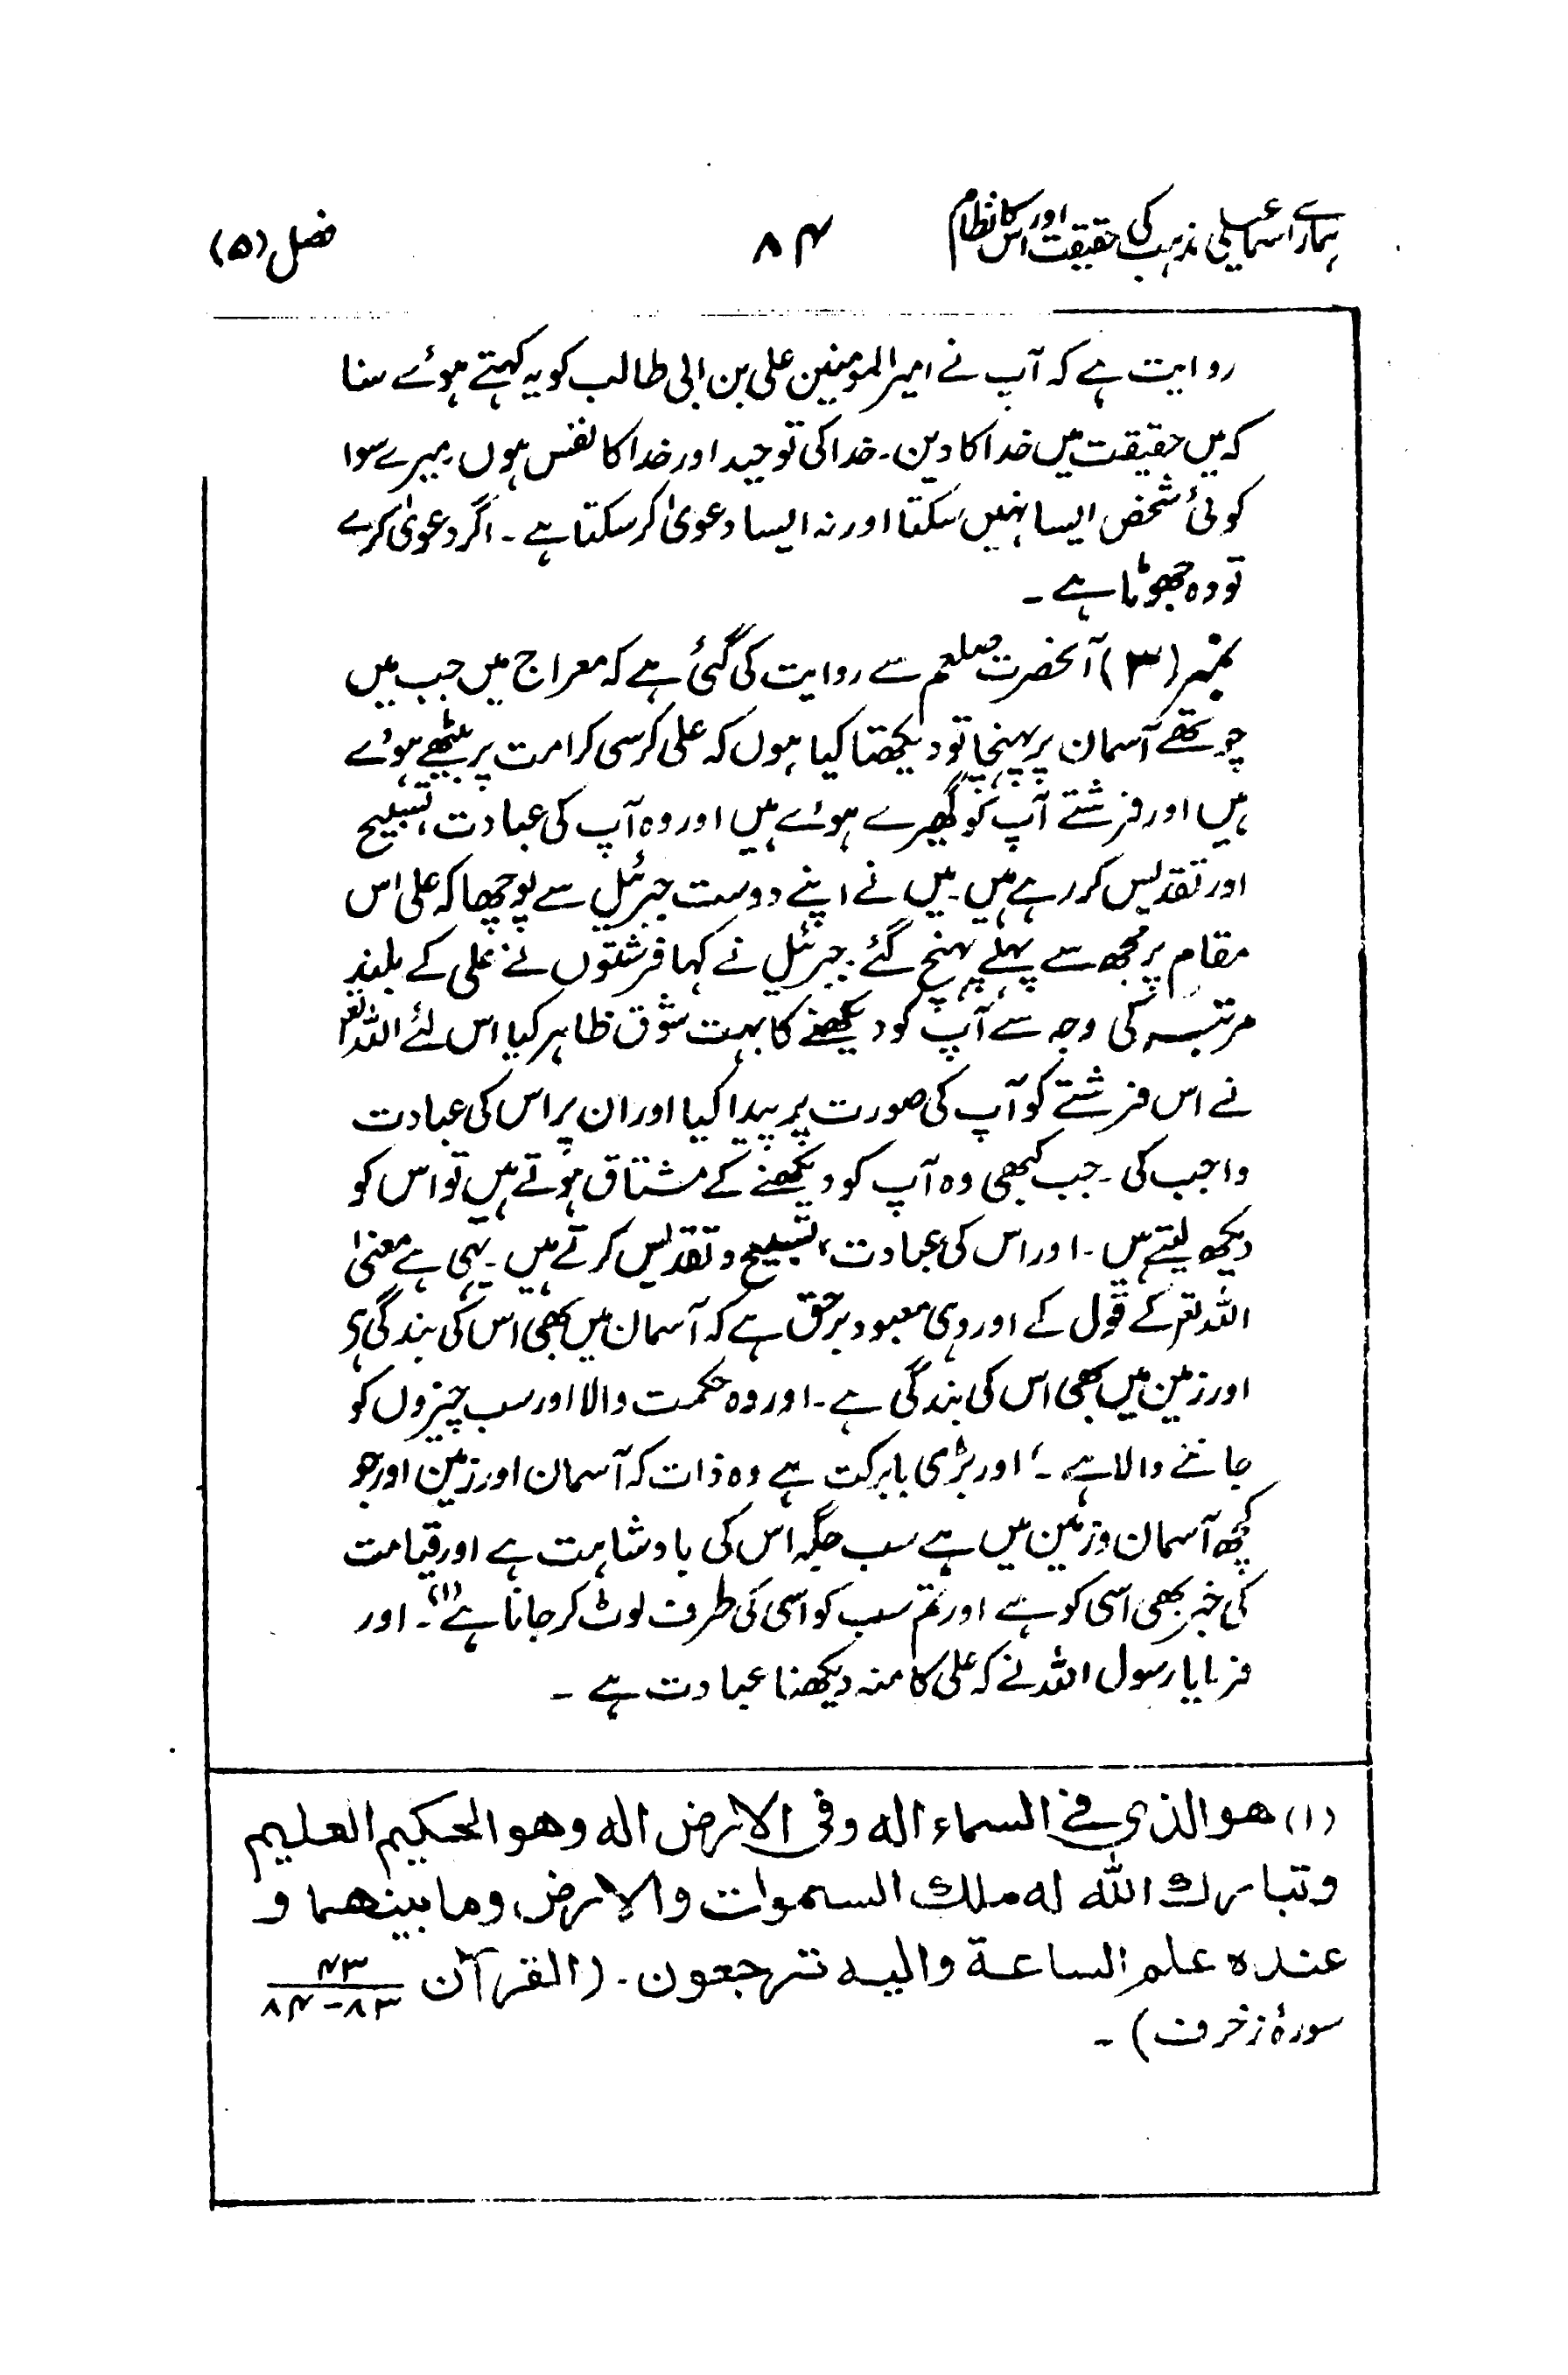 ہمارے اسماعیلی مذہب کی حقیقت اور اس کا نظام ۸۴ فصل (۵)
روایت ہے کہ آپ نے امیر المومنین علی بن ابی طالب کو یہ کہتے ہوئے سنا
کہ میں حقیقت میں خدا کا دین۔ خدا کی توحید اور خدا کا نفس ہوں۔ میرے سوا
کوئی شخص ایسا نہیں سکتا اور نہ ایسا دعویٰ کر سکتا ہے۔ اگر دعویٰ کرے
تو وہ جھوٹا ہے۔
نمبر (۳) آنحضرت صلعم سے روایت کی گئی ہے کہ معراج میں جب میں
چوتھے آسمان پر پہنچا تو دیکھتا کیا ہوں کہ علی کرسی کرامت پر بیٹھے ہوئے
ہیں اور فرشتے آپ کو گھیرے ہوئے ہیں اور وہ آپ کی عبادت، تسبیح
اور تقدیس کر رہے ہیں۔ میں نے اپنے دوست جبرئیل سے پوچھا کہ علی اس
مقام پر مجھ سے پہلے پہنچ گئے۔ جبرئیل نے کہا فرشتوں نے علی کے بلند
مرتبہ کی وجہ سے آپ کو دیکھنے کا بہت شوق ظاہر کیا اس لئے اللہ تعر
نے اس فرشتے کو آپ کی صورت پر پیدا کیا اور ان پر اس کی عبادت
واجب کی۔ جب کبھی وہ آپ کو دیکھنے کے مشتاق ہوتے ہیں تو اس کو
دیکھ لیتے ہیں۔ اور اس کی عبادت، تسبیح و تقدیس کرتے ہیں۔ یہی ہے معنیٰ
اللہ تعر کے قول کے اور وہی معبود برحق ہے کہ آسمان میں بھی اس کی بندگی ہے
اور زمین میں بھی اس کی بندگی ہے۔ اور وہ حکمت والا اور سب چیزوں کو
جاننے والا ہے۔ اور بڑی بابرکت ہے وہ ذات کہ آسمان اور زمین اور جو
کچھ آسمان و زمین میں ہے سب جگہ اس کی بادشاہت ہے اور قیامت
کی خبر بھی اسی کو ہے اور تم سب کو اسی کی طرف لوٹ کر جانا ہے (۱)۔ اور
فرمایا رسول اللہ نے کہ علی کا منہ دیکھنا عبادت ہے۔
(۱) هو الذي في السماء اله وفى الارض اله وهو الحكيم العليم
وتبارك الله له ملك السموات والارض وما بينهما و
عنده علم الساعة واليه ترجعون۔ (القرآن ۴۳ / ۸۳-۸۴
سورۂ زخرف)۔